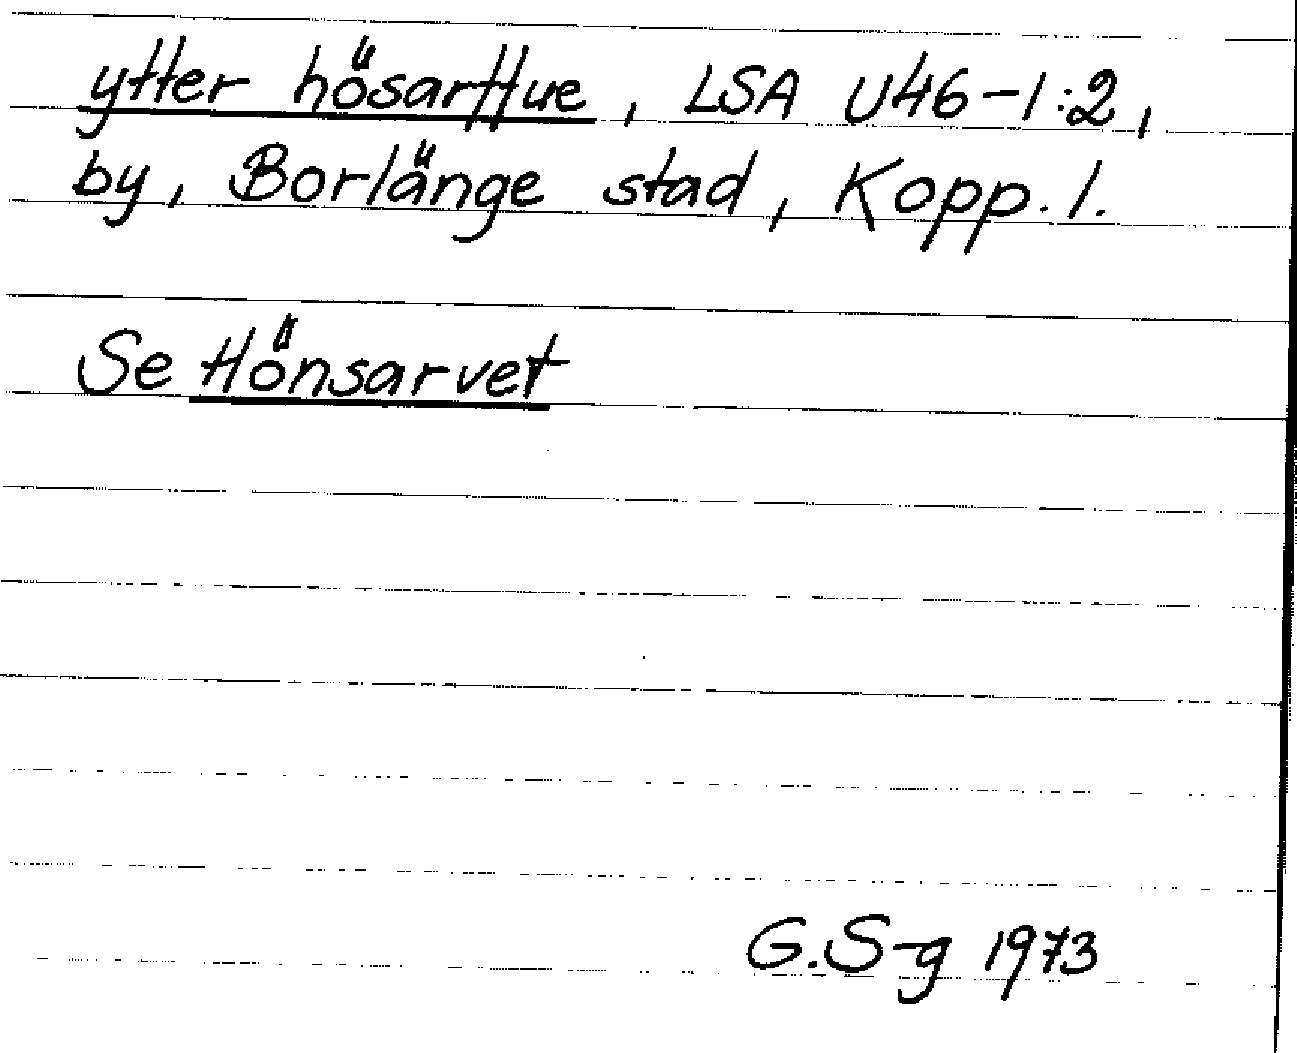 ytter hösarffue, LSA U46-1:2,
by, Borlänge stad, Kopp. l.
Se Hönsarvet
G.S-g 1973